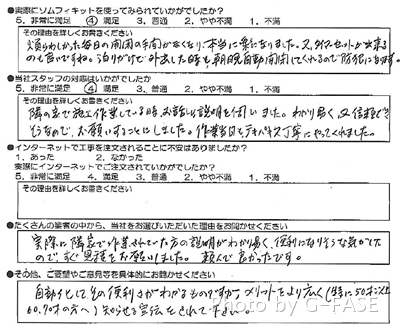 ●実際にソムフィキットを使ってみられていかがでしたか？
5、非常に満足 ④満足 3、普通 2、やや不満 1、不満
その理由を詳しくお書きください
煩らわしかった毎日の開閉の手間がなくなり、本当に楽になりました。又、タイマーセットが出来る
のも良いですね。泊りがけで外出した時も朝晩自動開閉してくれるので防犯になります。
●当社スタッフの対応はいかがでしたか
5、非常に満足 ④満足 3、普通 2、やや不満 1、不満
その理由を詳しくお書きください
隣の家で施工作業している時、お話し、説明を伺いました。わかり易く、又信頼でき
そうなので、お願いすることにしました。作業当日もテキパキと丁寧にやってくれました。
●インターネットで工事を注文されることに不安はありましたか？
1、あった 2、なかった
実際にインターネットでご注文されていかがでしたか？
5、非常に満足 4、満足 3、普通 2、やや不満 1、不満
その理由を詳しくお書きください
●たくさんの業者の中から、当社をお選びいただいた理由をお聞かせください
実際に隣家で作業されていた方の説明がわかり易く、便利になりそうな気がした
ので、すぐ見積をお願いしました。頼んで良かったです。
●その他、ご要望やご意見等を具体的にお聞かせください
自動化してその便利さがわかるものですから、メリットをより広く(特に50才以上
60、70才の方へ)知らせる宣伝をされて下さい。
Photo by G-FASE